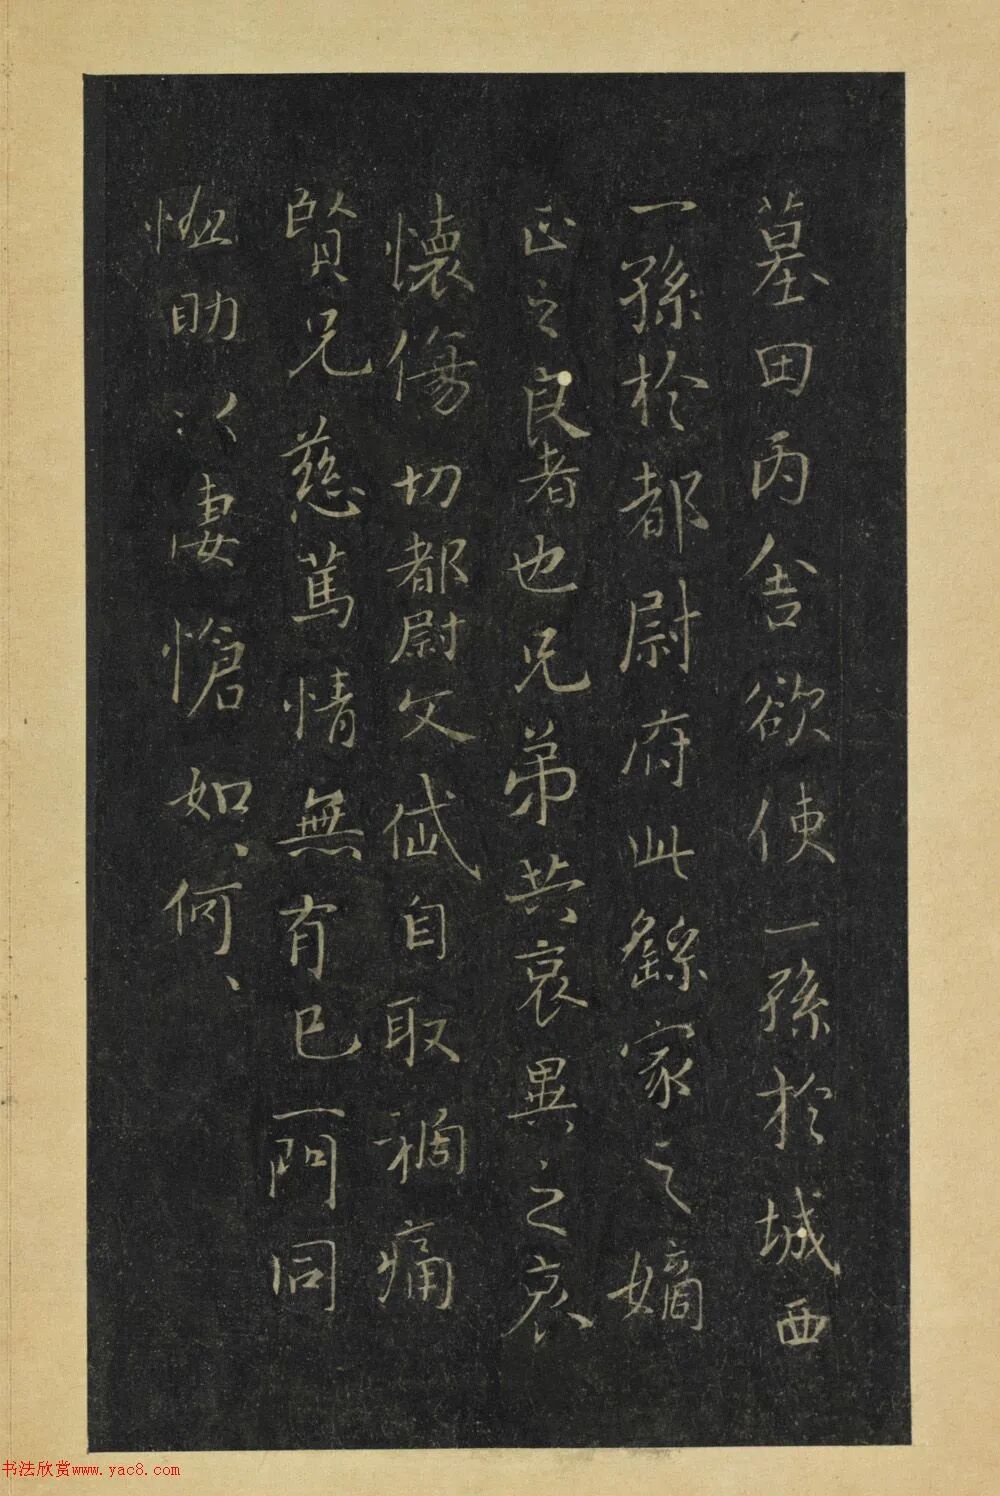 墓田丙舍欲使一孫於城西
一孫於都尉府此繇家之嫡
正之良者也兄弟共哀異之哀
懷傷切都尉文岱自取禍痛
賢兄慈篤情無有已一門同
恤助以悽愴如、何、
书法欣赏www.yac8.com